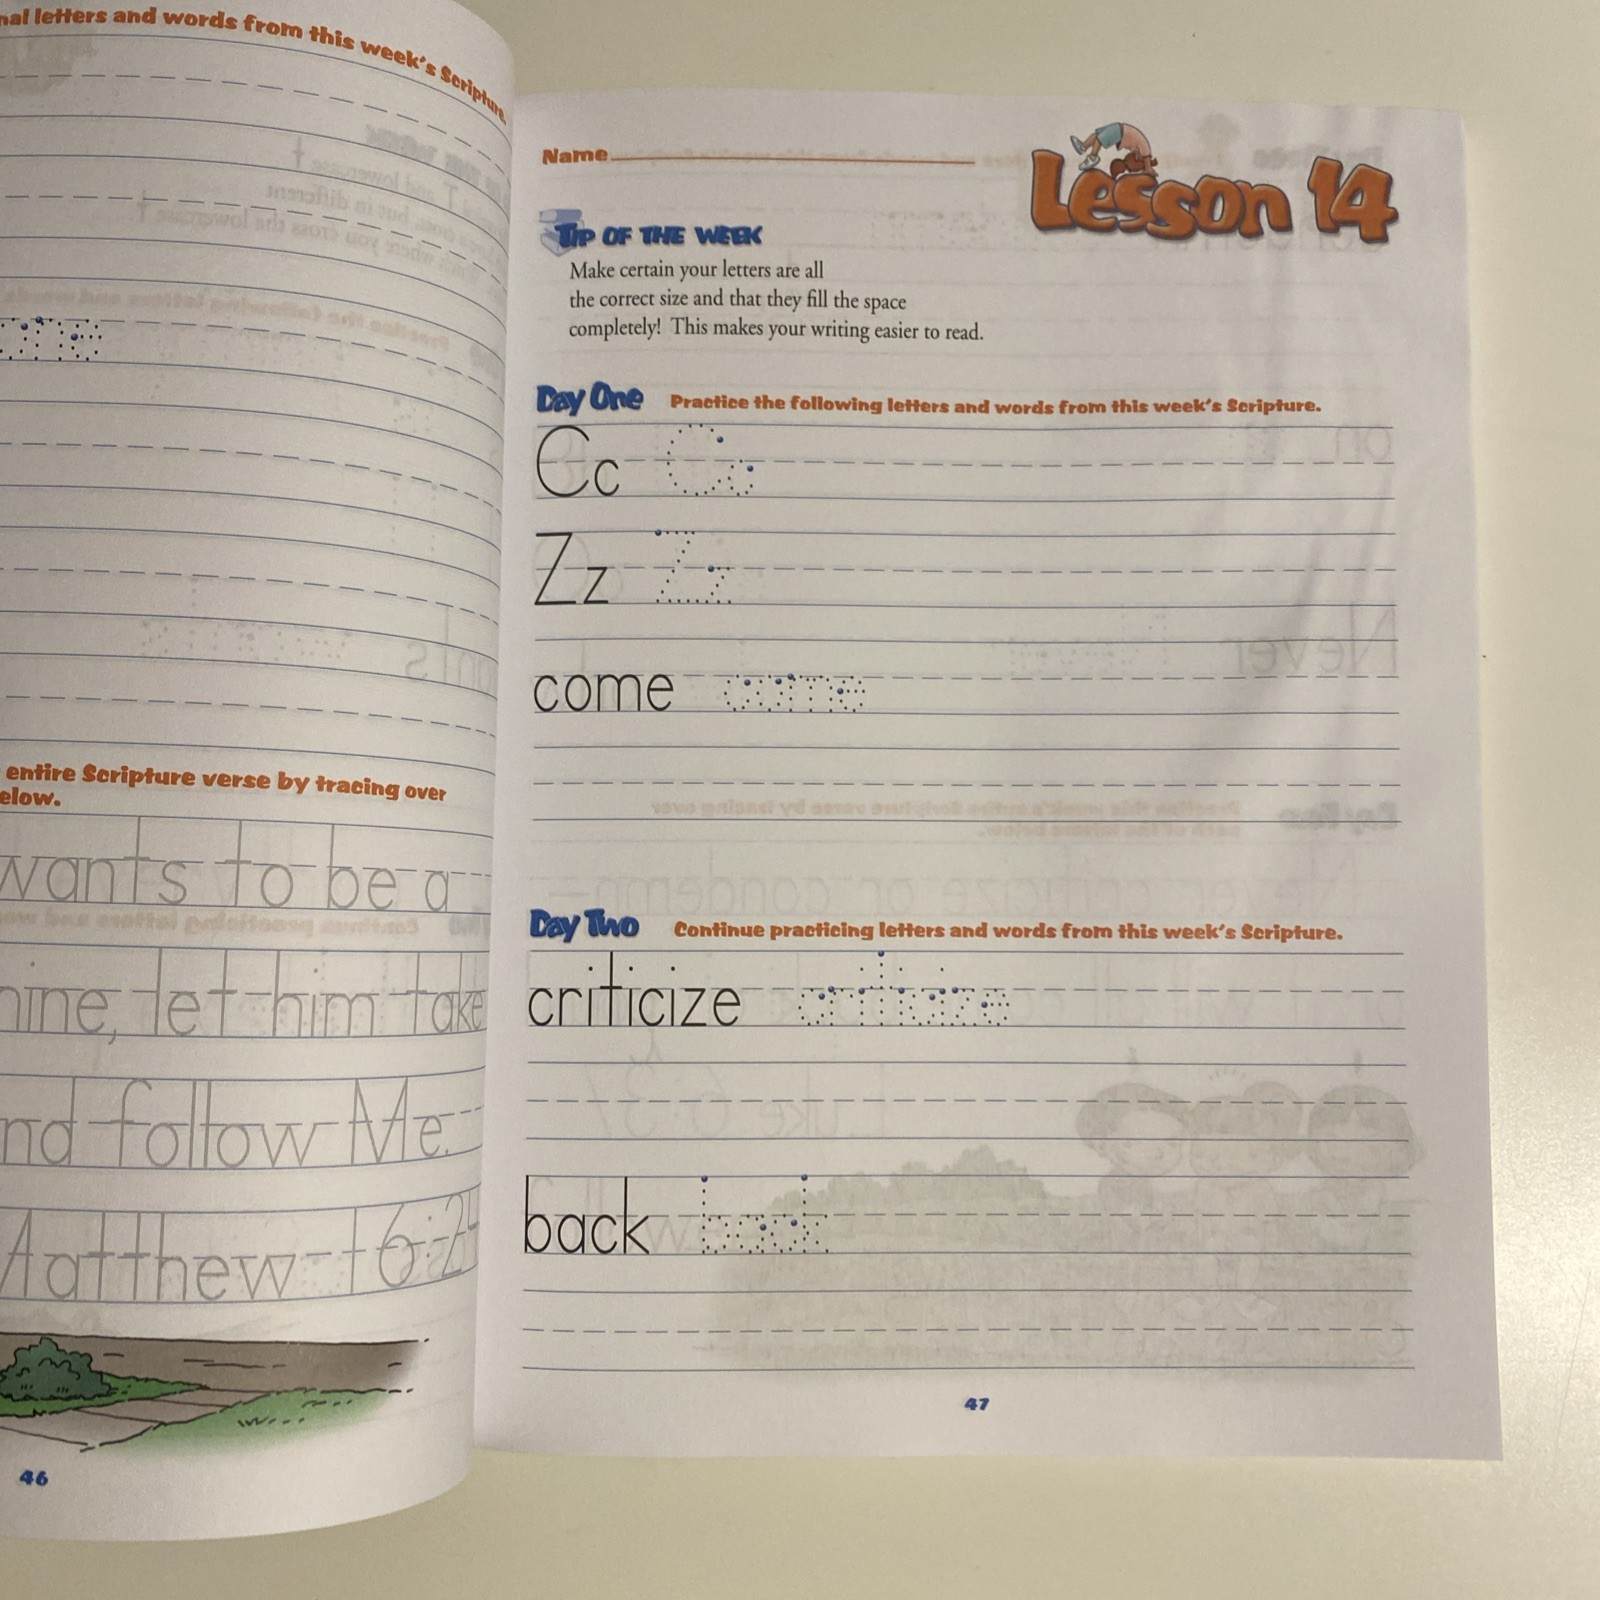 nal letters and words from this week's Scripture.
entire Scripture verse by tracing over
elow.
wants to be a
nine, let him take
nd follow Me.
Matthew 16:24
46
Name
Lesson 14
Tip of the Week
Make certain your letters are all
the correct size and that they fill the space
completely! This makes your writing easier to read.
Day One Practice the following letters and words from this week's Scripture.
Cc Cc
Zz Zz
come come
Day Two Continue practicing letters and words from this week's Scripture.
criticize criticize
back back
47